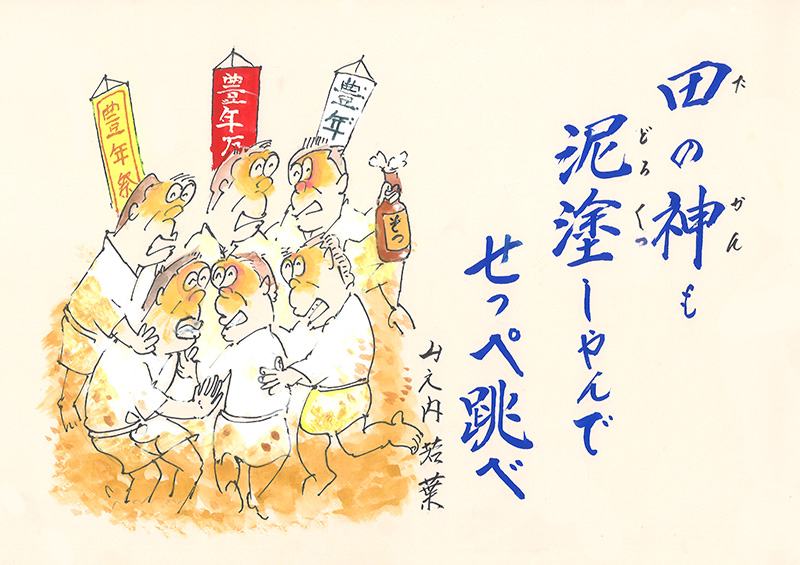 田の神も
た かん
泥塗しやんで
どろ くっ
せっぺ跳べ
山之内若葉
豊年
豊年万
豊年祭
そつ